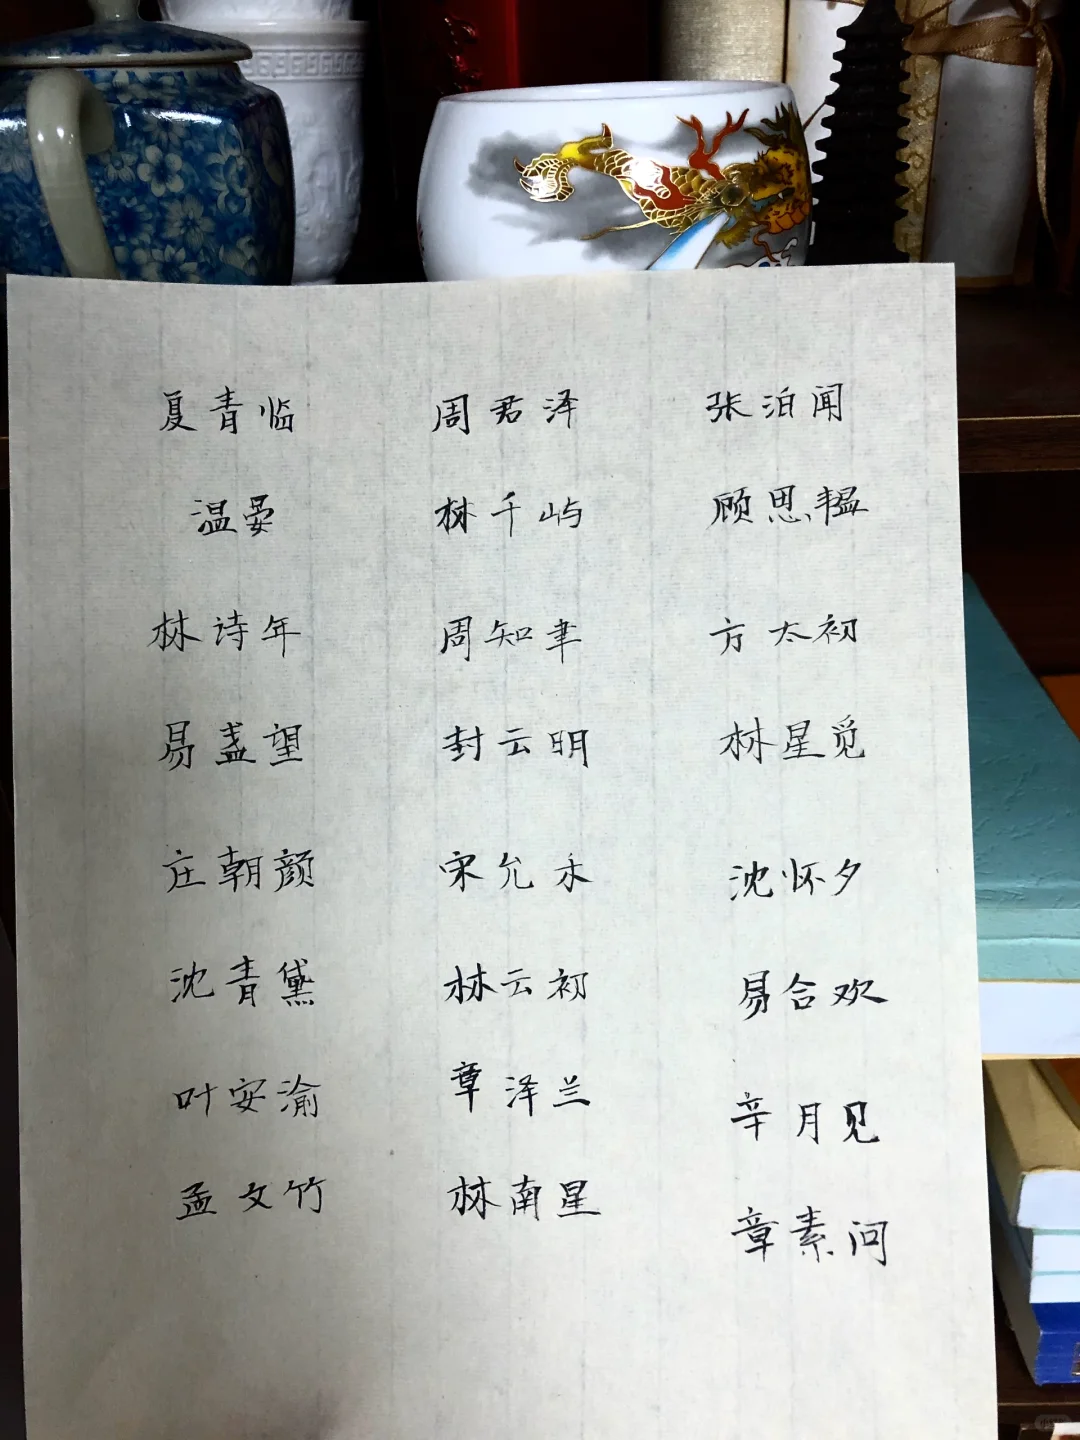 夏青临 周君泽 张泊闻
温晏 林千屿 顾思韫
林诗年 周知聿 方太初
易盏望 封云明 林星觅
庄朝颜 宋允禾 沈怀夕
沈青黛 林云初 易合欢
叶安渝 章泽兰 辛月见
孟文竹 林南星 章素问